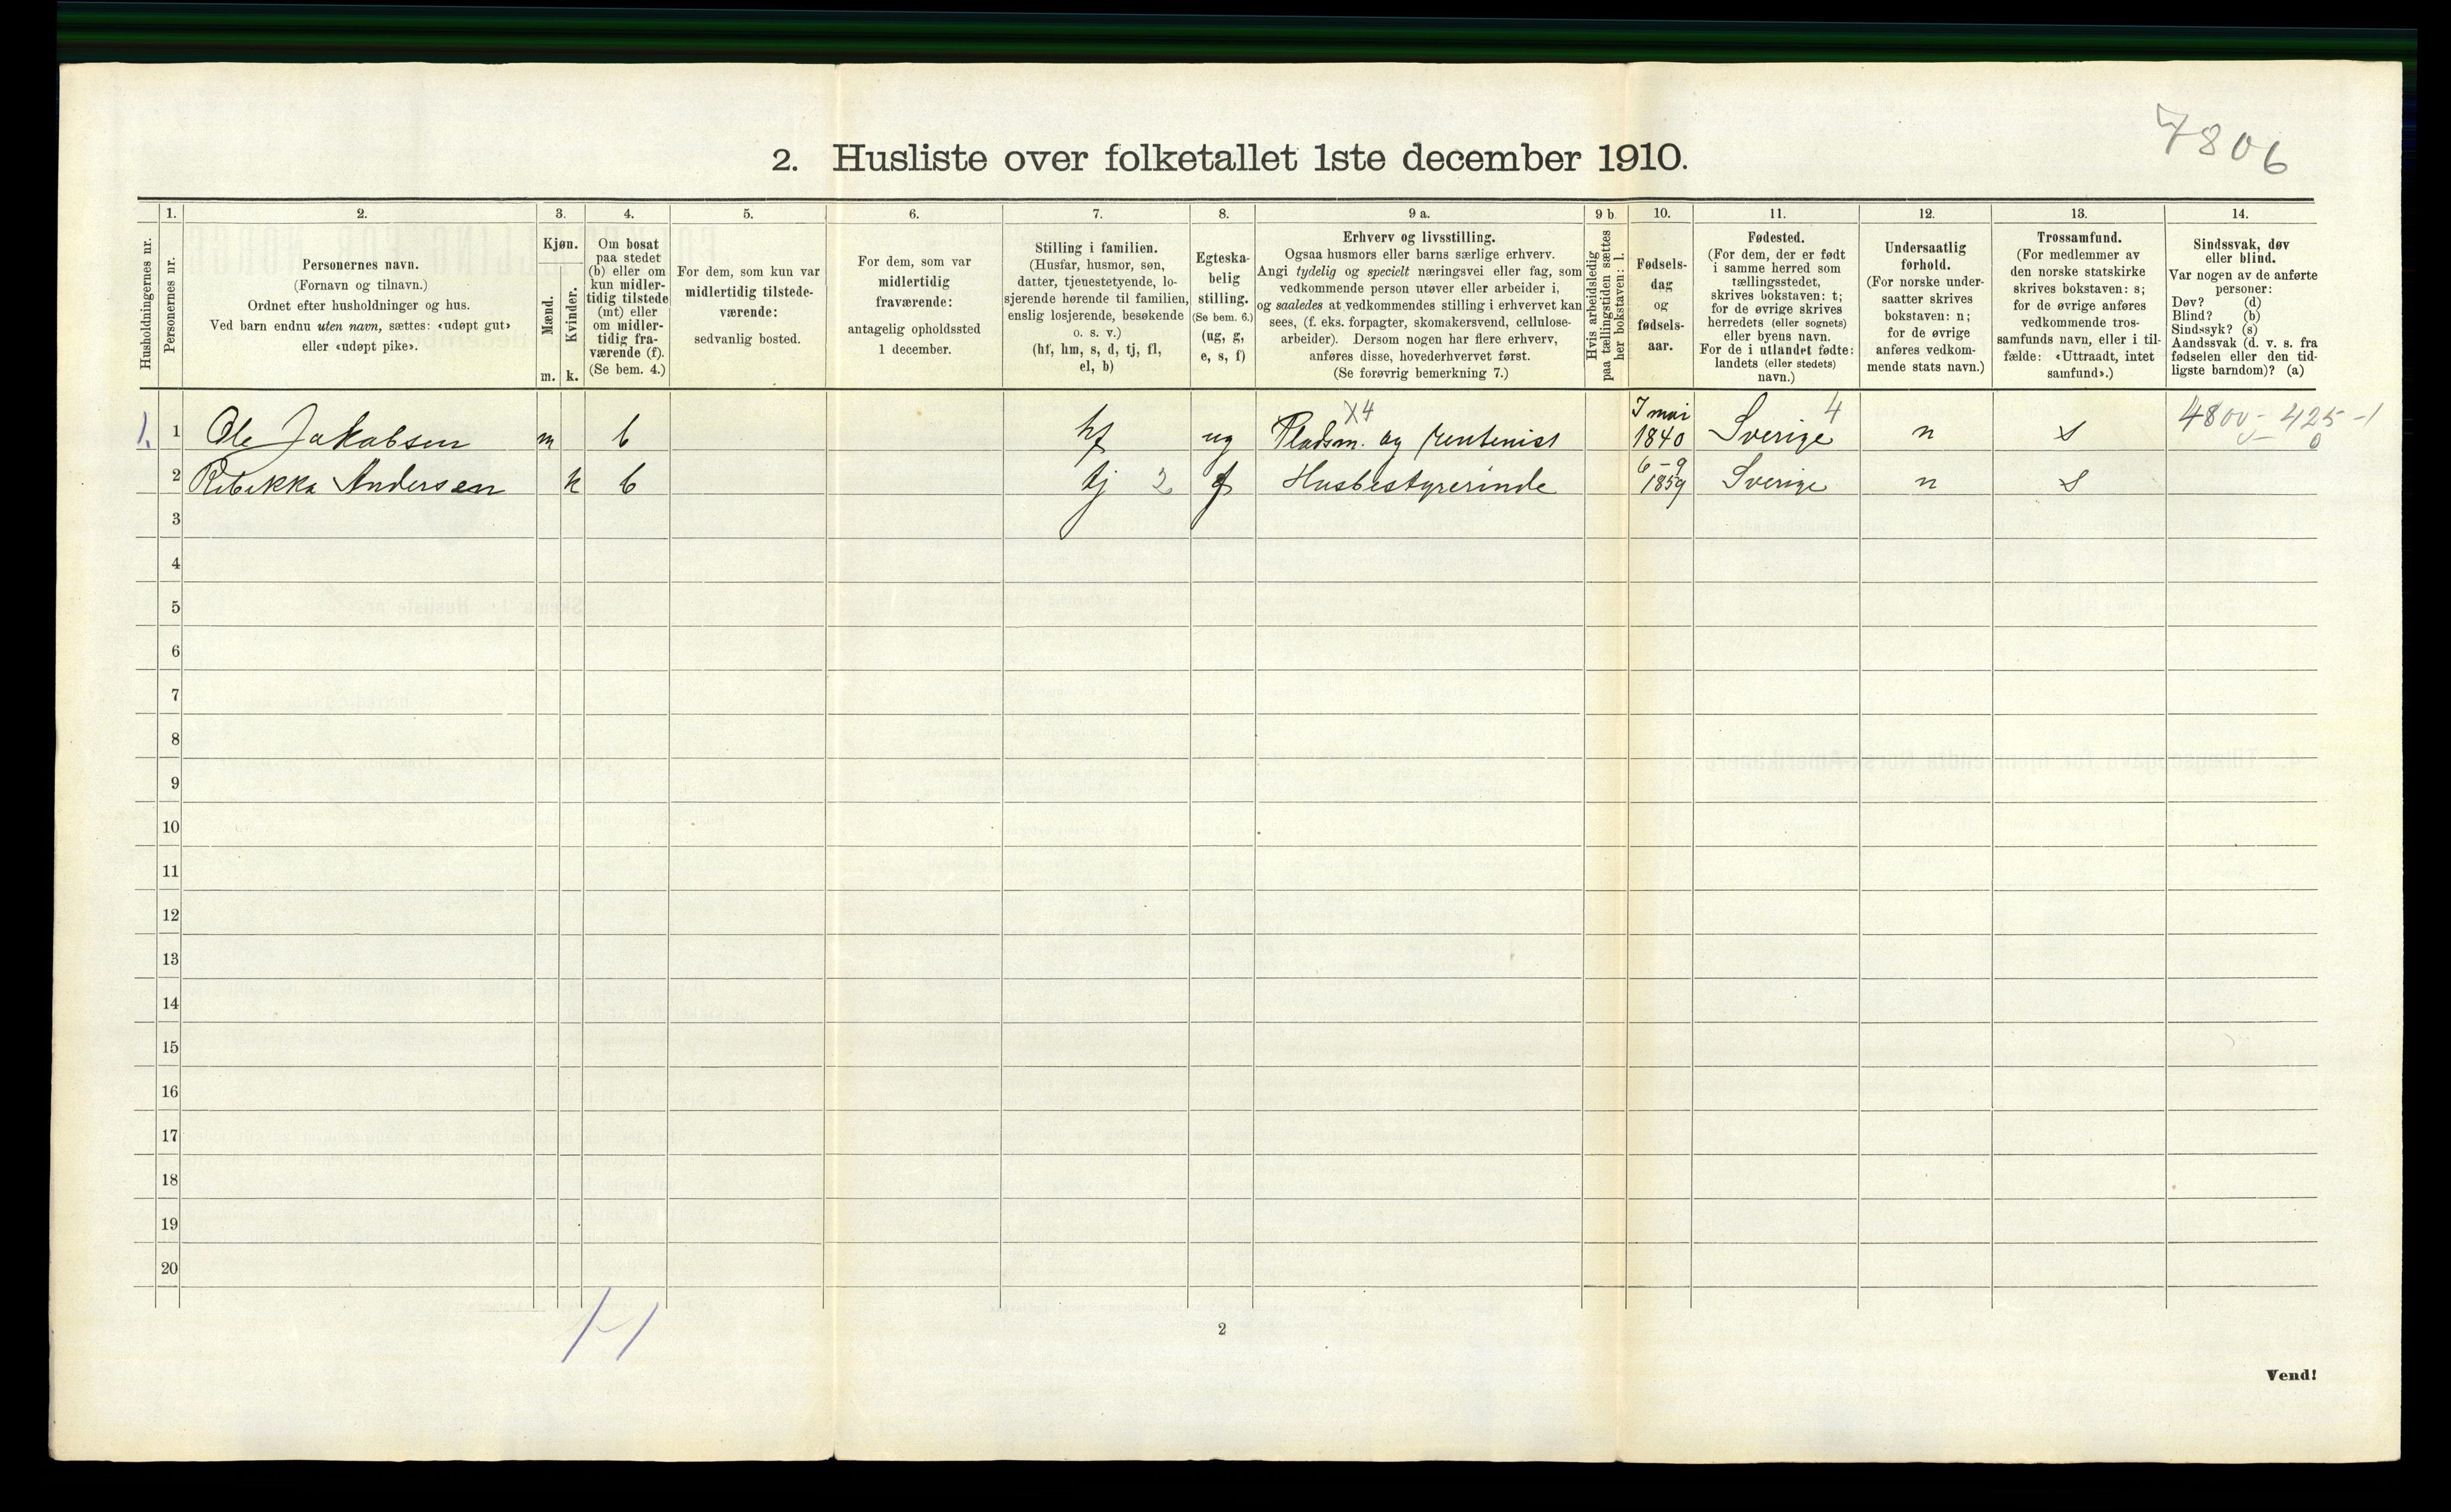 7806
2. Husliste over folketallet 1ste december 1910.
Husholdningernes nr.
1.
Personernes nr.
2.
Personernes navn.
(Fornavn og tilnavn.)
Ordnet efter husholdninger og hus.
Ved barn endnu uten navn, sættes: «udøpt gut»
eller «udøpt pike».
3.
Kjøn.
Mænd.
Kvinder.
m. k.
4.
Om bosat
paa stedet
(b) eller om
kun midler-
tidig tilstede
(mt) eller
om midler-
tidig fra-
værende (f).
(Se bem. 4.)
5.
For dem, som kun var
midlertidig tilstede-
værende:
sedvanlig bosted.
6.
For dem, som var
midlertidig
fraværende:
antagelig opholdssted
1 december.
7.
Stilling i familien.
(Husfar, husmor, søn,
datter, tjenestetyende, lo-
sjerende hørende til familien,
enslig losjerende, besøkende
o. s. v.)
(hf, hm, s, d, tj, fl,
el, b)
8.
Egteska-
belig
stilling.
(Se bem. 6.)
(ug, g,
e, s, f)
9 a.
Erhverv og livsstilling.
Ogsaa husmors eller barns særlige erhverv.
Angi tydelig og specielt næringsvei eller fag, som
vedkommende person utøver eller arbeider i,
og saaledes at vedkommendes stilling i erhvervet kan
sees, (f. eks. forpagter, skomakersvend, cellulose-
arbeider). Dersom nogen har flere erhverv,
anføres disse, hovederhvervet først.
(Se forøvrig bemerkning 7.)
9 b
Hvis arbeidsledig
paa tællingstiden sættes
her bokstaven: l.
10.
Fødsels-
dag
og
fødsels-
aar.
11.
Fødested.
(For dem, der er født
i samme herred som
tællingsstedet,
skrives bokstaven: t;
for de øvrige skrives
herredets (eller sognets)
eller byens navn.
For de i utlandet fødte:
landets (eller stedets)
navn.)
12.
Undersaatlig
forhold.
(For norske under-
saatter skrives
bokstaven: n;
for de øvrige
anføres vedkom-
mende stats navn.)
13.
Trossamfund.
(For medlemmer av
den norske statskirke
skrives bokstaven: s;
for de øvrige anføres
vedkommende tros-
samfunds navn, eller i til-
fælde: «Uttraadt, intet
samfund».)
14.
Sindssvak, døv
eller blind.
Var nogen av de anførte
personer:
Døv? (d)
Blind? (b)
Sindssyk? (s)
Aandssvak (d. v. s. fra
fødselen eller den tid-
ligste barndom)? (a)
X4 7 mai 4 4800 - 425 - 1
1. 1 Ole Jakobsen m b hf ug Pladsm. og rentenist 1840 Sverige n s 0
6-9
2 Rebekka Andersen k b tj 2 f Husbestyrerinde 1859 Sverige n s
3
4
5
6
7
8
9
10
11
12
13
14
15
16
17
18
19
20
1-1
2
Vend!